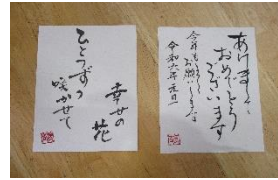 あけまして
おめでとう
ございます
今年もよろしく
お願いします
令和六年元旦
幸せの
花
ひとつずつ
咲かせて